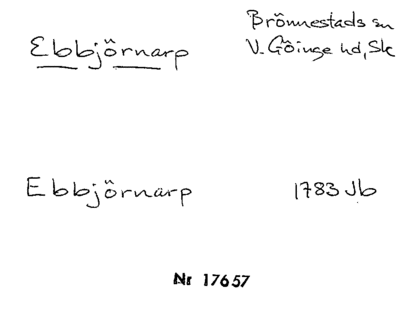 Ebbjörnarp
Brönnestads sn
V. Göinge hd, Sk
Ebbjörnarp
1783 Jb
Nr 17657